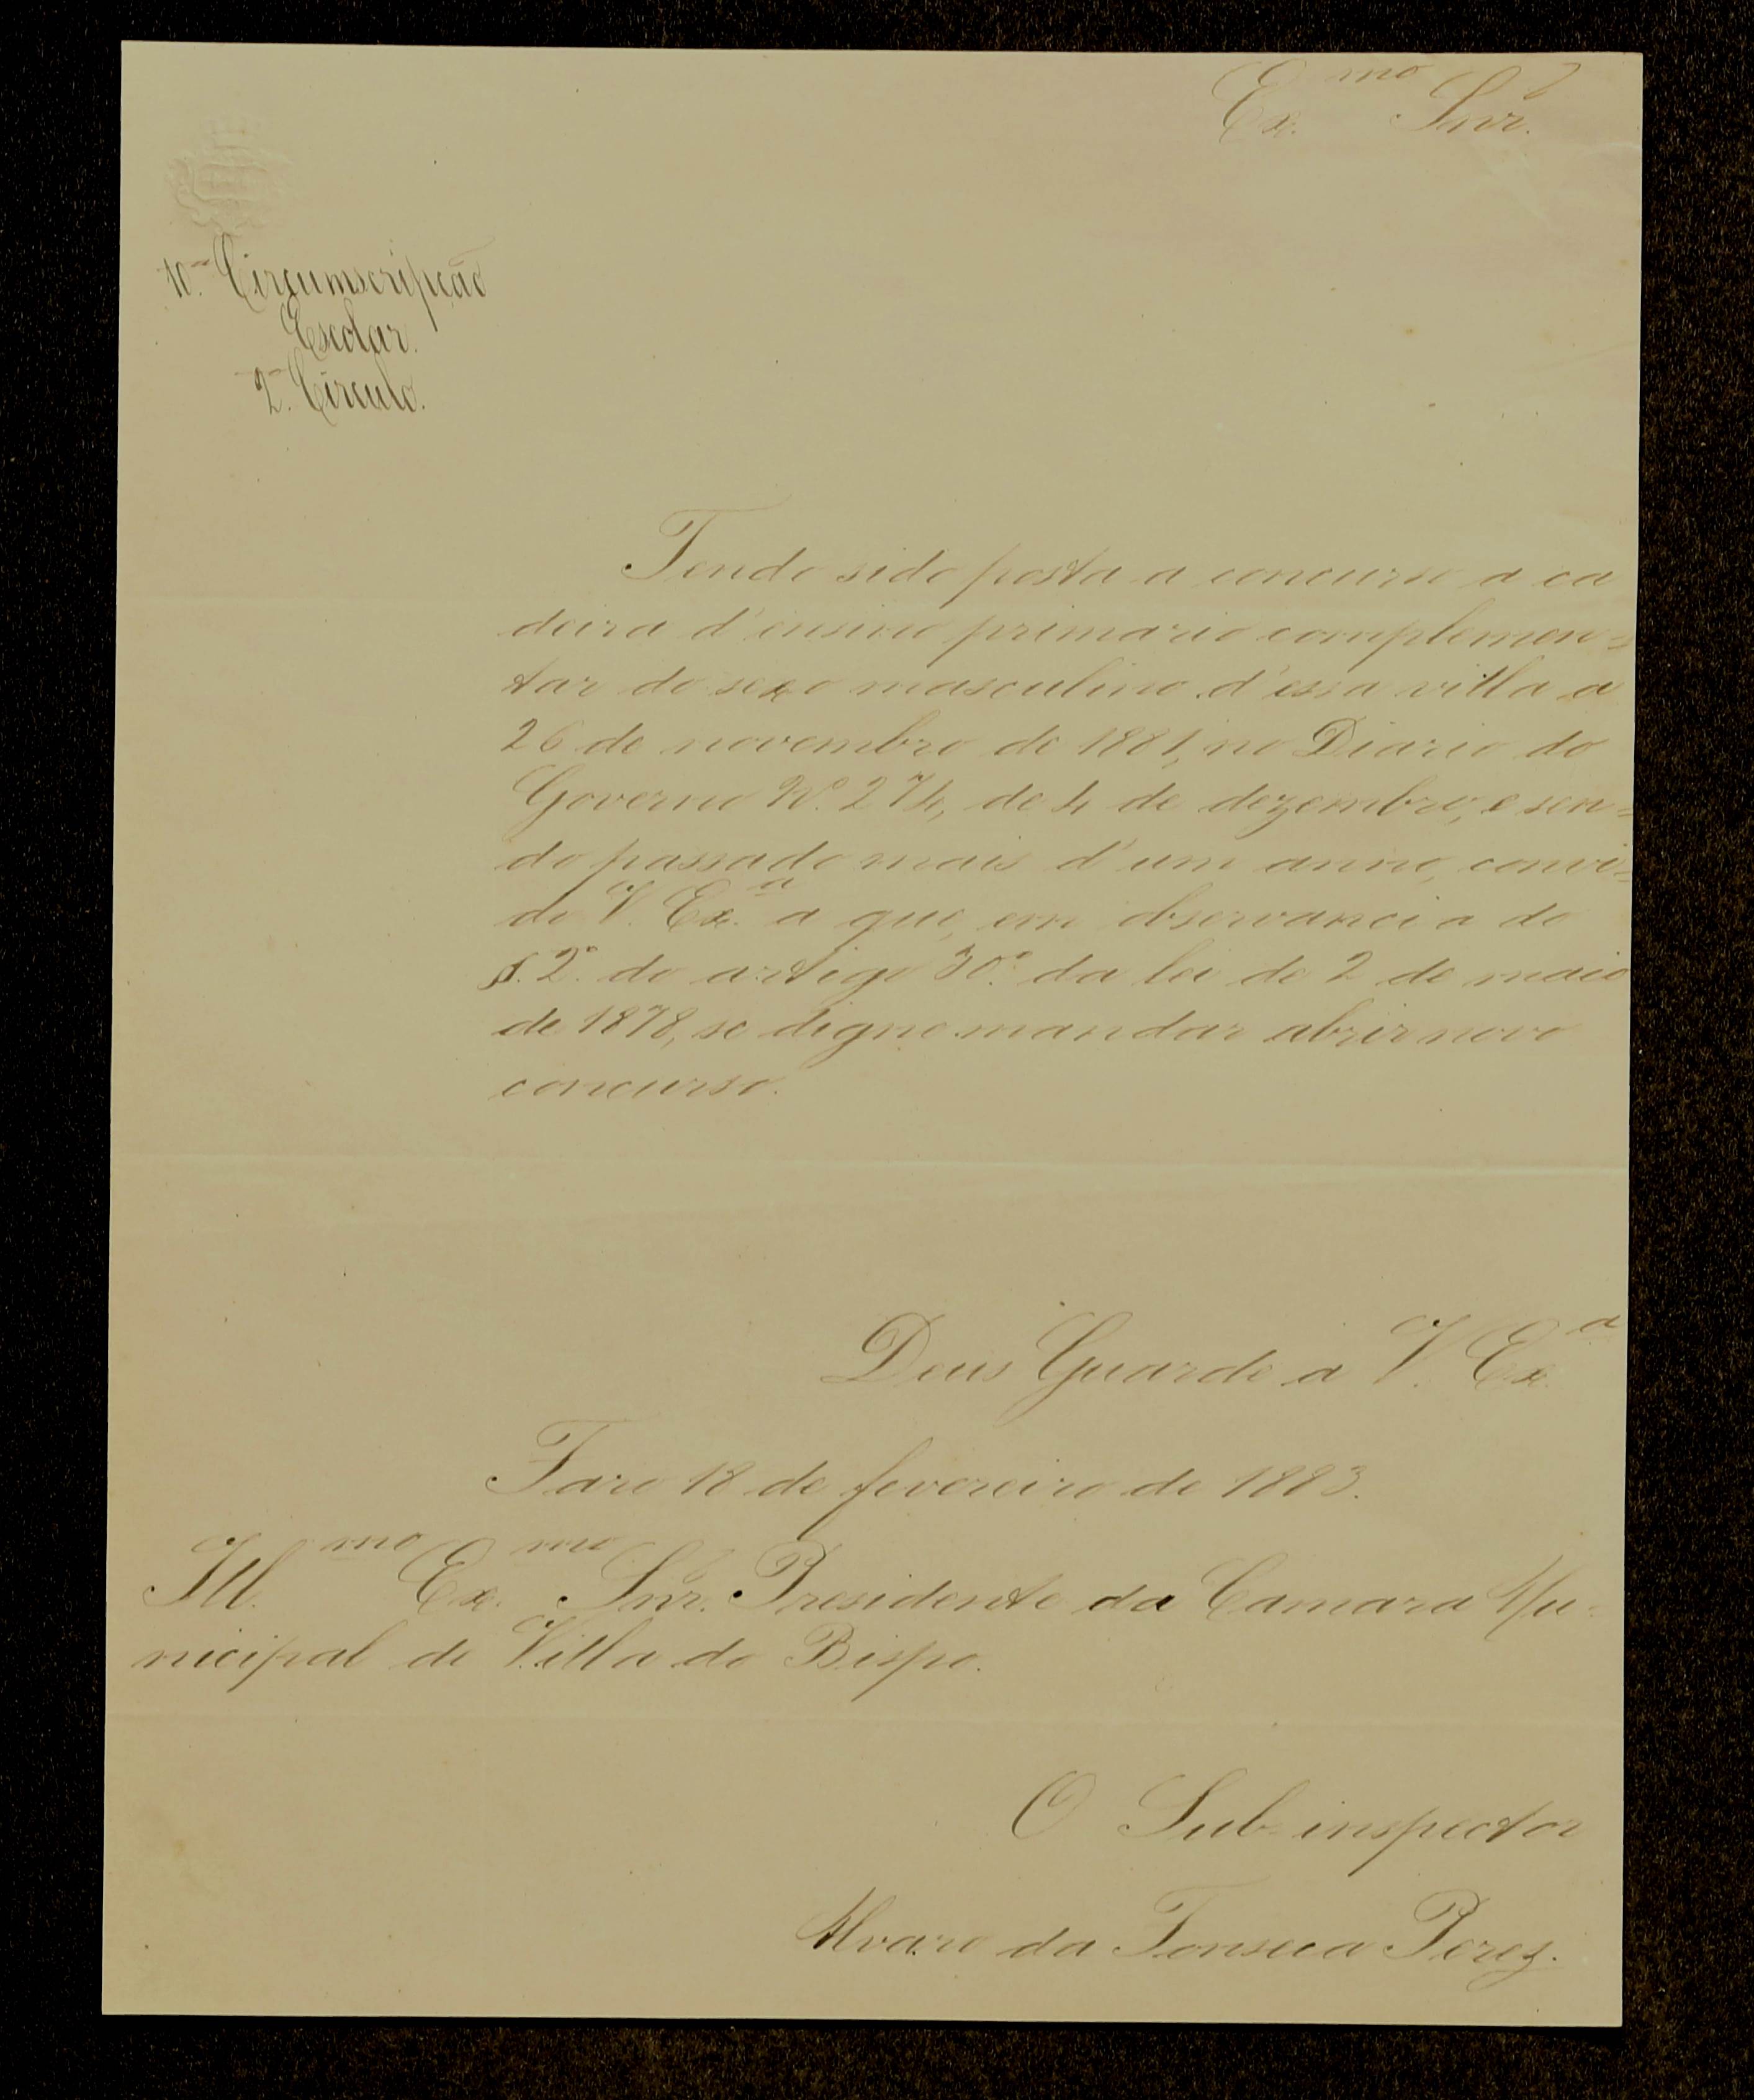 Ex.mo Snr.
10.a Circumscripção
Escolar.
2.o Circulo.
Tendo sido posta a concurso a ca
deira d'ensino primario complemen=
tar do sexo masculino d'essa villa a
26 de novembro de 1881, no Diario do
Governo N.o 274, de 4 de dezembro, e sen=
do passado mais d'um anno, convi=
do V. Ex.a a que, em observancia do
§. 2.o do artigo 30.o da lei de 2 de maio
de 1878, se digne mandar abrir novo
concurso.
Deus Guarde a V. Ex.a
Faro 18 de fevereiro de 1883.
Ill.mo Ex.mo Snr. Presidente da Camara Mu=
nicipal de Villa do Bispo.
O Sub-inspector
Alvaro da Fonseca Perez.